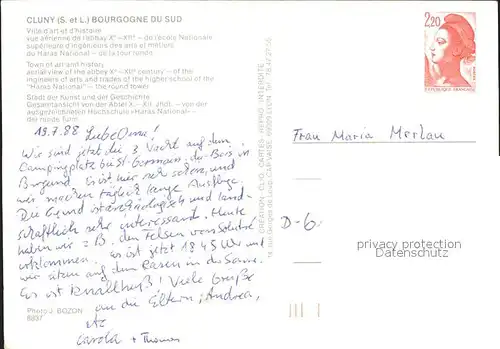 CLUNY (S. et L.) BOURGOGNE DU SUD
Ville d'art et d'histoire
vue aérienne de l'abbaye Xe - XIIe - de l'école Nationale
supérieure d'ingénieurs des arts et métiers
du Haras National - de la tour ronde
Town of art and history
aerial view of the abbey Xe - XIIth century - of the
ingineers of arts and trades of the higher school of the
"Haras National" - the round tower
Stadt der Kunst und der Geschichte
Gesamtansicht von der Abtei X. - XII. Jhdt. - von der
ausgezeichneten Hochschule »Haras National« -
der runde Turm
19.7.88 Liebe Oma!
Wir sind jetzt die 3. Nacht auf dem
Campingplatz bei St. Germain-du-Bois in
Burgund. Es ist hier sehr schön, und
wir machen täglich lange Ausflüge.
Die Gegend ist und land-
schaftlich sehr interessant. Heute
haben wir z.B. den Felsen von Solutré
erklommen. Es ist jetzt 18.45 Uhr und
wir sitzen auf dem Rasen in der Sonne.
Es ist knallheiß! Viele Grüße
an die Eltern, Andrea,
etc
Carola + Thomas
Photo J. BOZON
8837
CREATION CLIO, CARTES REPRO INTERDITE
LYON Tél.
2,20
Frau Maria
D-6
privacy protection
Datenschutz